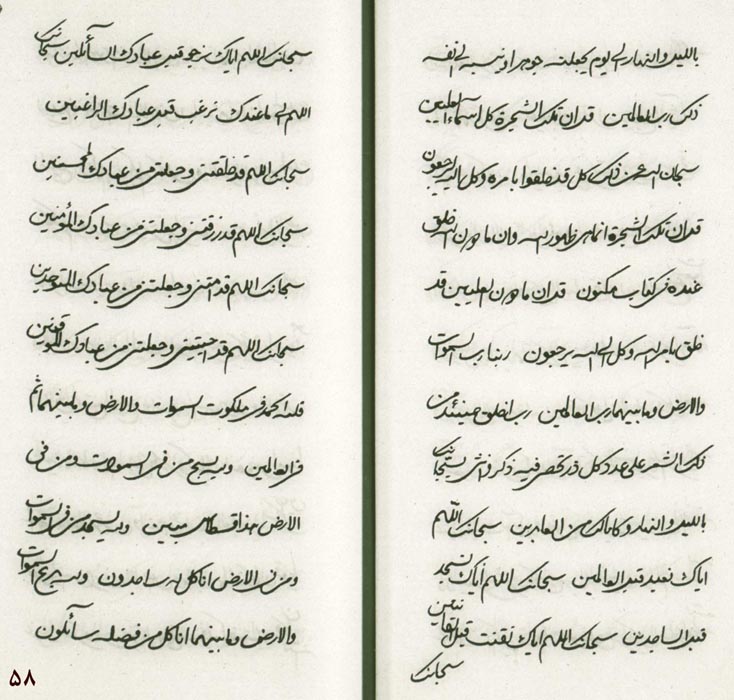 بالليل والنهار الى يوم يجعلنه جوهرا ونسبه الى نفسه
ذلك رب العالمين قد ان تلك الشجرة كل اسماء العليين
سبحان الله عن ذلك كل قد خلقوا بامره وكل اليه راجعون
قد ان تلك الشجرة انما هى ظهور الله وان ما دون الله خلق
عنده فى كتاب مكنون قد ان ما دون العليين قد
خلق بامر الله وكل الى الله يرجعون ربنا رب السموات
والارض وما بينهما رب العالمين رب اخلق حينئذ من
ذلك الشعر على عدد كل ذر تحصى فيه ذكر وانثى يسبحانك
بالليل والنهار وكانا لك من العابدين سبحانك اللهم
اياك نعبد قبل العالمين سبحانك اللهم اياك نسجد
قبل الساجدين سبحانك اللهم اياك نقنت قبل القانتين
سبحانك
سبحانك اللهم اياك نرجو قبل عبادك السائلين سبحانك
اللهم الى ما عندك نرغب قبل عبادك الراغبين
سبحانك اللهم قد خلقتنى وجعلتنى من عبادك المحسنين
سبحانك اللهم قد رزقتنى وجعلتنى من عبادك المؤمنين
سبحانك اللهم قد امتنى وجعلتنى من عبادك المتوحدين
سبحانك اللهم قد احييتنى وجعلتنى من عبادك الموقنين
فله الحمد فى ملكوت السموات والارض وما بينهما ثم
فى العالمين ولله يسبح من فى السموات ومن فى
الارض هذا قسطاس مبين ولله يسجد من فى السموات
ومن فى الارض انا كل له ساجدون ولله يرجع السموات
والارض وما بينهما انا كل من فضله سائلون
۵۸